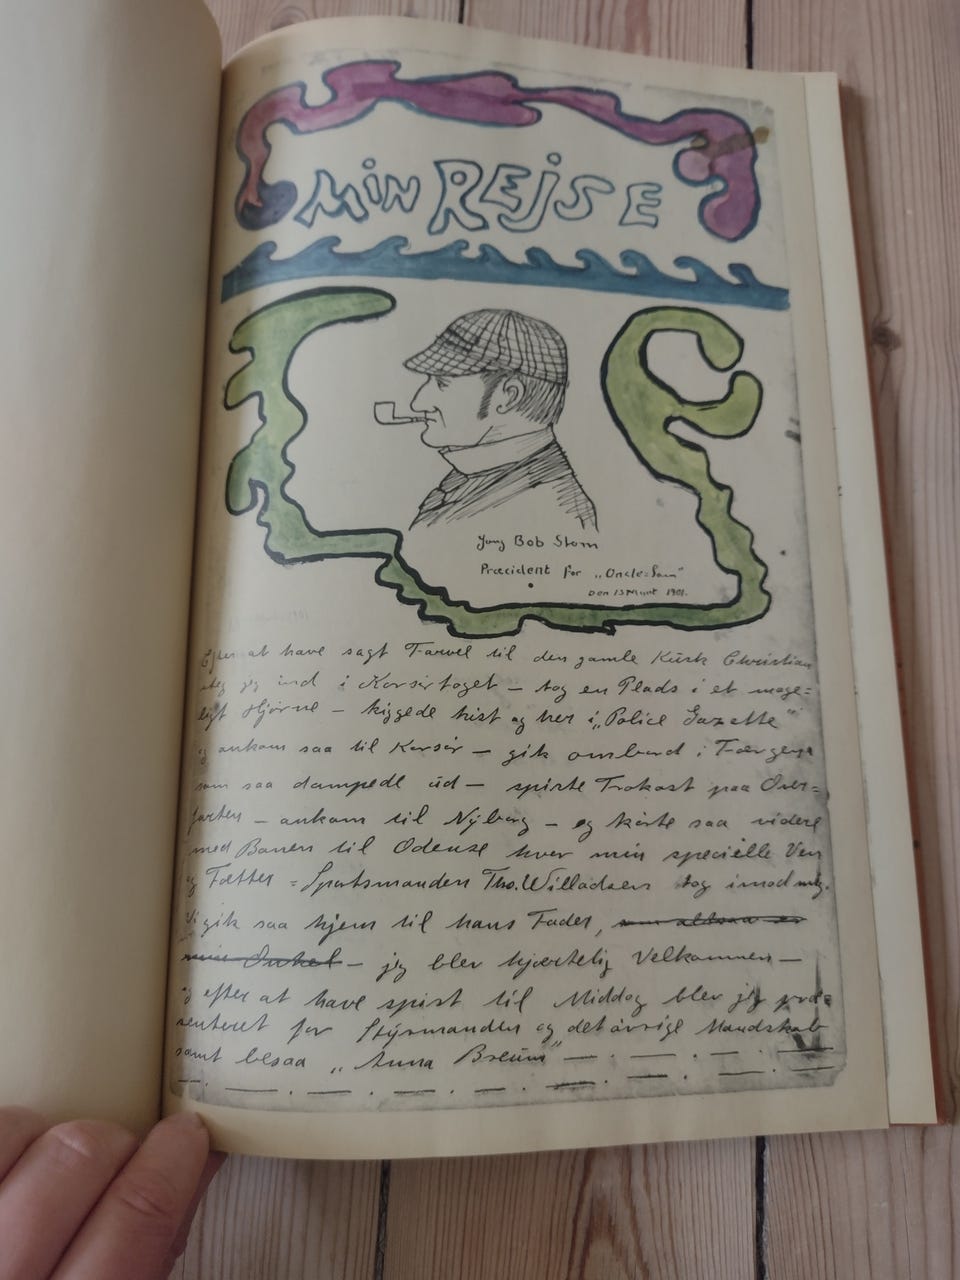 MIN REJSE
Jong Bob Storn
Præcident for „Oncle=Sam"
den 13 1901.
Efter at have sagt Farvel til den gamle Kusk Christian
steg jeg ind i Korsørtoget — tog en Plads i et mage=
ligt Hjørne — kiggede hist og her i „Police Gazette"
og ankom saa til Korsør — gik ombord i Færgen
som saa dampede ud — spiste Frokost paa Over=
farten — ankom til Nyborg — og kørte saa videre
med Banen til Odense hvor min specielle Ven
og Fætter = Sportsmanden Tho. Willadsen tog imod mig.
Vi gik saa hjem til hans Fader, som altsaa er
min Onkel — jeg blev hjærtelig Velkommen —
og efter at have spist til Middag blev jeg præ=
senteret for Styrmanden og det øvrige Mandskab
samt besaa „Anna Breum" —